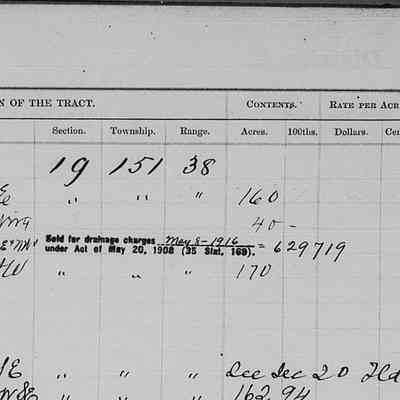 N OF THE TRACT. CONTENTS. RATE PER ACR
Section. Township. Range. Acres. 100ths. Dollars. Cen
19 151 38
" " " 160
40 -
Sold for drainage charges May 8-1916
under Act of May 20, 1908 (35 Stat. 169). = 629719
" " " 170
SE " " " Dec Dec 20
" " " 162 94